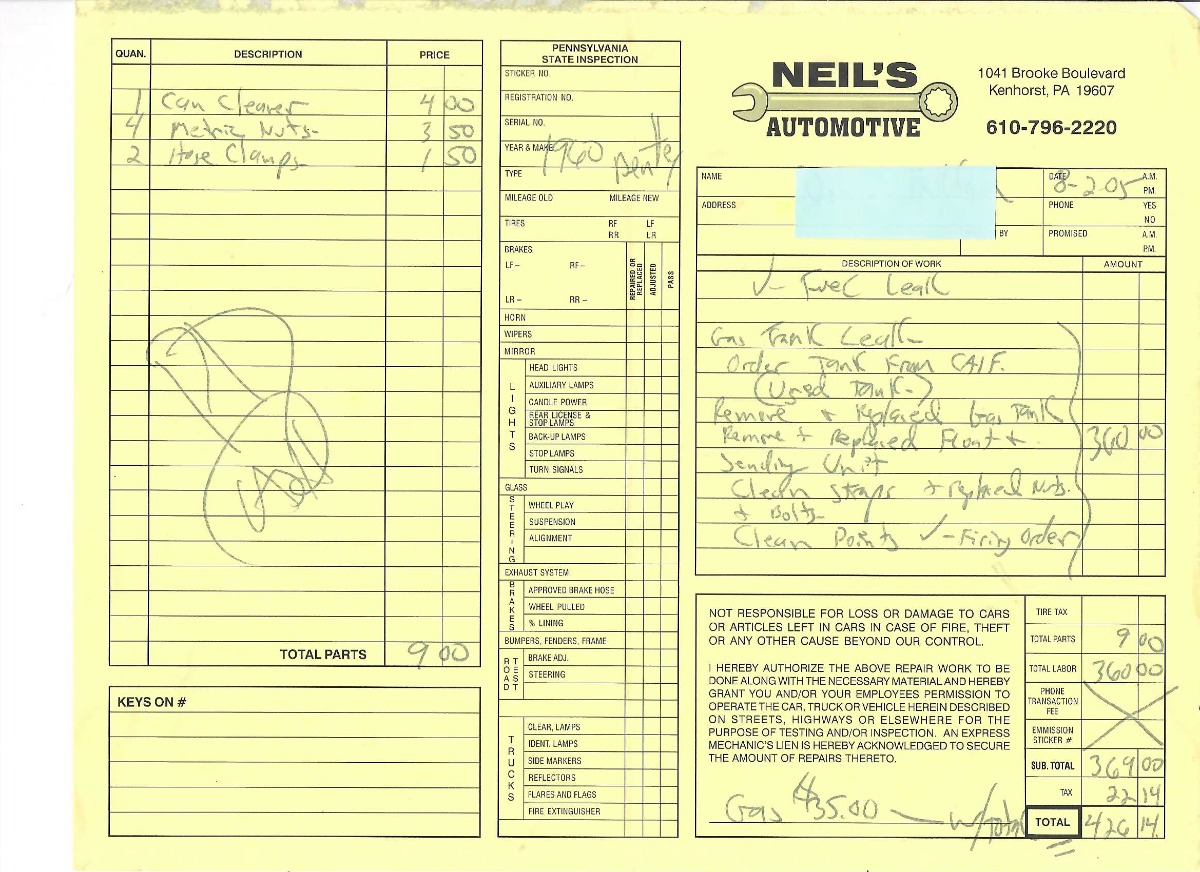 QUAN. DESCRIPTION PRICE
1 Can Cleaner 4 00
4 Metric Nuts- 3 50
2 Hose Clamps- 1 50
TOTAL PARTS 9 00
KEYS ON #
PENNSYLVANIA
STATE INSPECTION
STICKER NO.
REGISTRATION NO.
SERIAL NO.
YEAR & MAKE 1960
TYPE
MILEAGE OLD MILEAGE NEW
TIRES RF LF
RR LR
BRAKES
LF – RF –
LR – RR –
REPAIRED OR REPLACED
ADJUSTED
PASS
HORN
WIPERS
MIRROR
LIGHTS
HEAD LIGHTS
AUXILIARY LAMPS
CANDLE POWER
REAR LICENSE &
STOP LAMPS
BACK-UP LAMPS
STOP LAMPS
TURN SIGNALS
GLASS
STEERING
WHEEL PLAY
SUSPENSION
ALIGNMENT
EXHAUST SYSTEM
BRAKES
APPROVED BRAKE HOSE
WHEEL PULLED
% LINING
BUMPERS, FENDERS, FRAME
ROAD TEST
BRAKE ADJ.
STEERING
TRUCKS
CLEAR, LAMPS
IDENT. LAMPS
SIDE MARKERS
REFLECTORS
FLARES AND FLAGS
FIRE EXTINGUISHER
NEIL'S
AUTOMOTIVE
1041 Brooke Boulevard
Kenhorst, PA 19607
610-796-2220
NAME DATE 8-2-05 A.M.
P.M.
ADDRESS PHONE YES
NO
BY PROMISED A.M.
P.M.
DESCRIPTION OF WORK AMOUNT
✓- Fuel Leak
Gas Tank Leak-
Order Tank From CAIF.
(Used Tank-)
Remove + Replaced Gas Tank
Remove + Replaced Float + 360 00
Sending Unit
Clean Straps + Replaced Nuts.
+ Bolts-
Clean Points ✓-Firing Order
NOT RESPONSIBLE FOR LOSS OR DAMAGE TO CARS
OR ARTICLES LEFT IN CARS IN CASE OF FIRE, THEFT
OR ANY OTHER CAUSE BEYOND OUR CONTROL.
I HEREBY AUTHORIZE THE ABOVE REPAIR WORK TO BE
DONE ALONG WITH THE NECESSARY MATERIAL AND HEREBY
GRANT YOU AND/OR YOUR EMPLOYEES PERMISSION TO
OPERATE THE CAR, TRUCK OR VEHICLE HEREIN DESCRIBED
ON STREETS, HIGHWAYS OR ELSEWHERE FOR THE
PURPOSE OF TESTING AND/OR INSPECTION. AN EXPRESS
MECHANIC'S LIEN IS HEREBY ACKNOWLEDGED TO SECURE
THE AMOUNT OF REPAIRS THERETO.
Gas $35.00 — w/Total
TIRE TAX
TOTAL PARTS 9 00
TOTAL LABOR 360 00
PHONE
TRANSACTION
FEE
EMMISSION
STICKER #
SUB. TOTAL 369 00
TAX 22 14
TOTAL 426 14